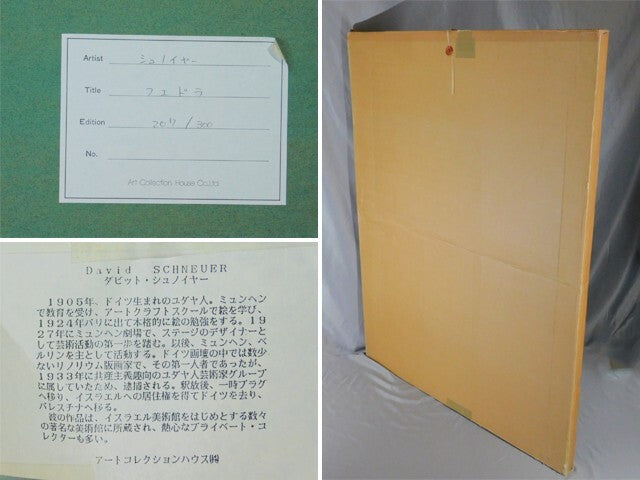 Artist シュノイヤー
Title フェドラ
Edition 207/300
No.
Art Collection House Co.,Ltd
David SCHNEUER
ダビット・シュノイヤー
1905年、ドイツ生まれのユダヤ人。ミュンヘン
で教育を受け、アートクラフトスクールで絵を学び、
1924年パリに出て本格的に絵の勉強をする。19
27年にミュンヘン劇場で、ステージのデザイナーと
して芸術活動の第一歩を踏む。以後、ミュンヘン、ベ
ルリンを主として活動する。ドイツ画壇の中では数少
ないリノリウム版画家で、その第一人者であったが、
1933年に共産主義趣向のユダヤ人芸術家グループ
に属していたため、逮捕される。釈放後、一時プラグ
へ移り、イスラエルへの居住権を得てドイツを去り、
パレスチナへ移る。
彼の作品は、イスラエル美術館をはじめとする数々
の著名な美術館に所蔵され、熱心なプライベート・コ
レクターも多い。
アートコレクションハウス㈱